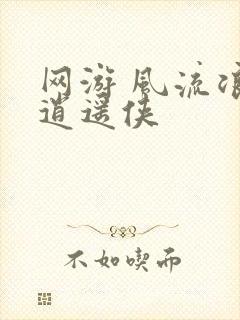 网游風流
逍遥侠
不如喫而